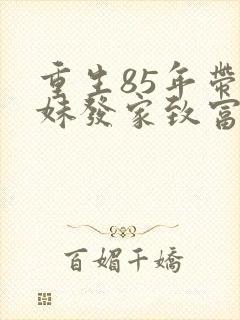 重生85年带
妹發家致富
百媚千嬌